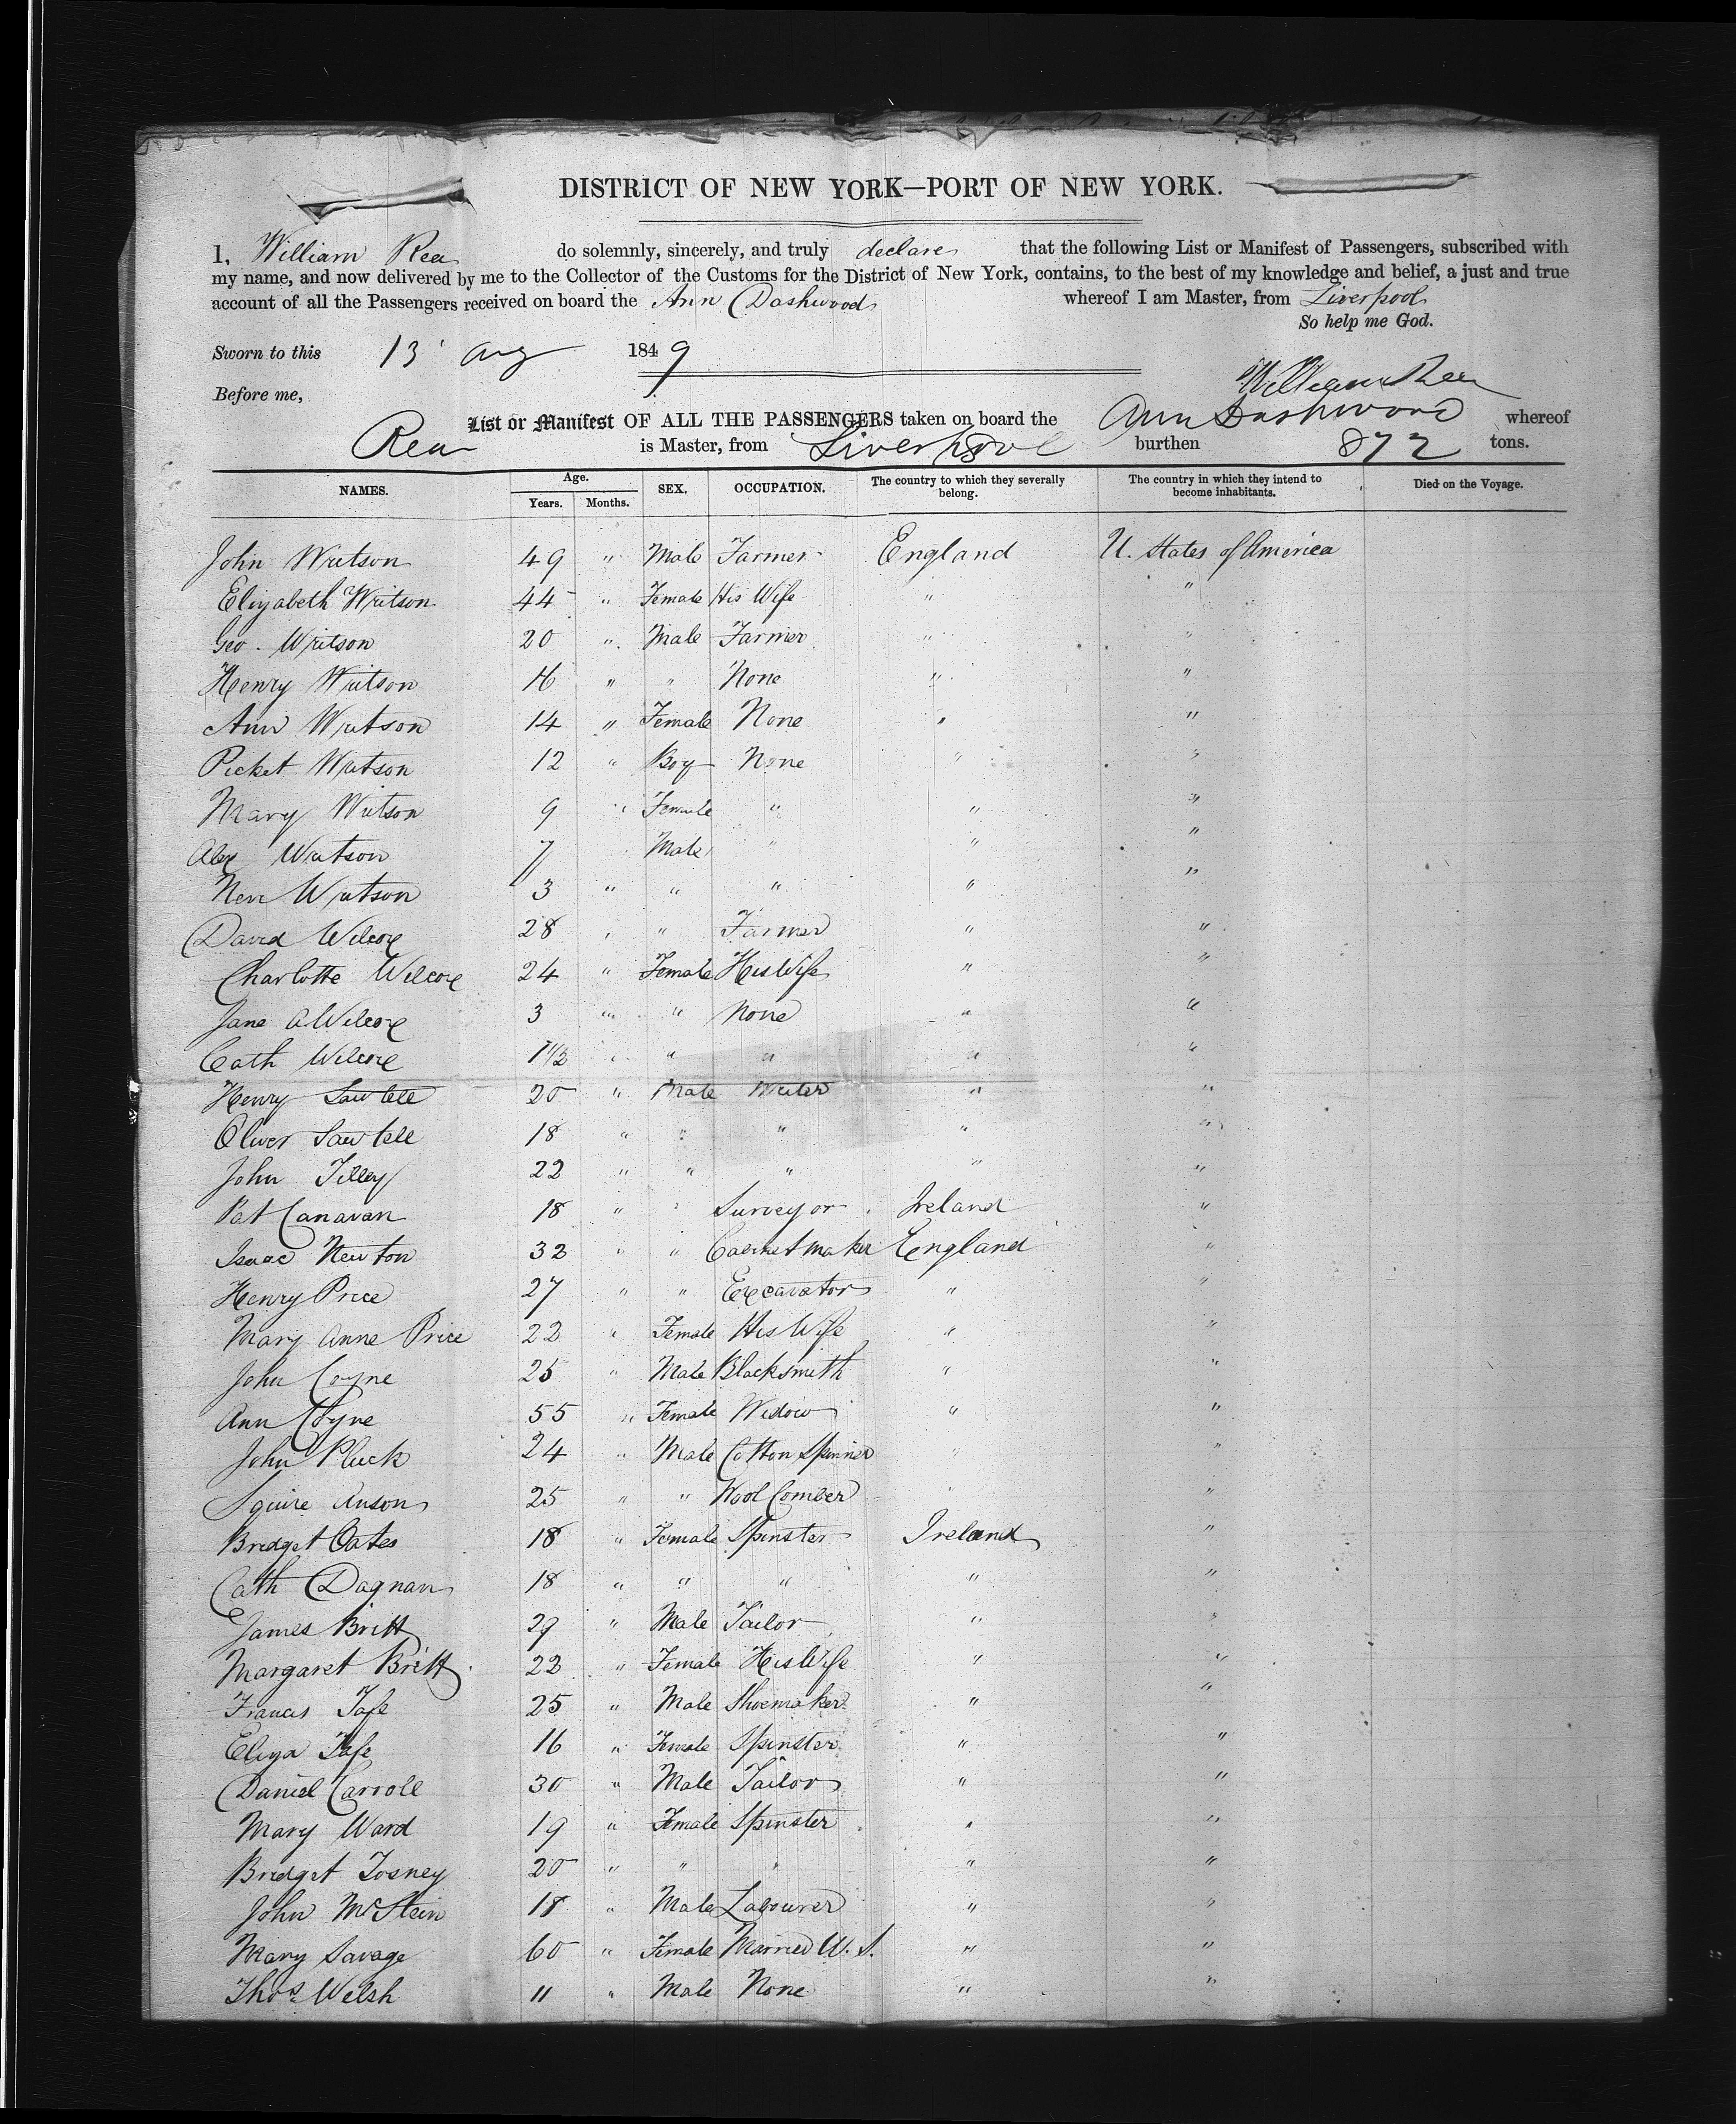 DISTRICT OF NEW YORK—PORT OF NEW YORK.
I, William Rea do solemnly, sincerely, and truly declare that the following List or Manifest of Passengers, subscribed with
my name, and now delivered by me to the Collector of the Customs for the District of New York, contains, to the best of my knowledge and belief, a just and true
account of all the Passengers received on board the Ann Dashwood whereof I am Master, from Liverpool
So help me God.
Sworn to this 13 Aug 1849
William Rea
Before me,
List or Manifest OF ALL THE PASSENGERS taken on board the Ann Dashwood whereof
Rea is Master, from Liverpool burthen 872 tons.
NAMES. Age. Years. Months. SEX. OCCUPATION. The country to which they severally belong. The country in which they intend to become inhabitants. Died on the Voyage.
John Writson 49 " Male Farmer England U. States of America
Elizabeth Writson 44 " Female His Wife " "
Geo. Writson 20 " Male Farmer " "
Henry Writson 16 " " None " "
Ann Writson 14 " Female None " "
Picket Writson 12 " Boy None " "
Mary Writson 9 " Female " " "
Alex Writson 7 Male " " "
Writson 3 " " " " "
David Wilcox 28 " " Farmer " "
Charlotte Wilcox 24 " Female His Wife " "
Jane A Wilcox 3 " " None " "
Cath Wilcox 1 1/2 " " " " "
Henry Sawtell 20 " Male Writer " "
Oliver Sawtell 18 " " " " "
John Tilley 22 " " " " "
Pat Canavan 18 " " Surveyor Ireland "
Isaac Newton 32 " " Cabinet maker England "
Henry Price 27 " " Excavator " "
Mary Anne Price 22 " Female His Wife " "
John Coyne 25 " Male Blacksmith " "
Ann Coyne 55 " Female Widow " "
John Pluck 24 " Male Cotton Spinner " "
Squire Anson 25 " " Wool Comber " "
Bridget Oates 18 " Female Spinster Ireland "
Cath Dagnan 18 " " " " "
James Britt 29 " Male Tailor " "
Margaret Britt 22 " Female His Wife " "
Francis Tafe 25 " Male Shoemaker " "
Eliza Tafe 16 " Female Spinster " "
Daniel Carroll 30 " Male Tailor " "
Mary Ward 19 " Female Spinster " "
Bridget Tosney 20 " " " " "
John McStein 18 " Male Labourer " "
Mary Savage 60 " Female Married W. " "
Thos Welsh 11 " Male None " "